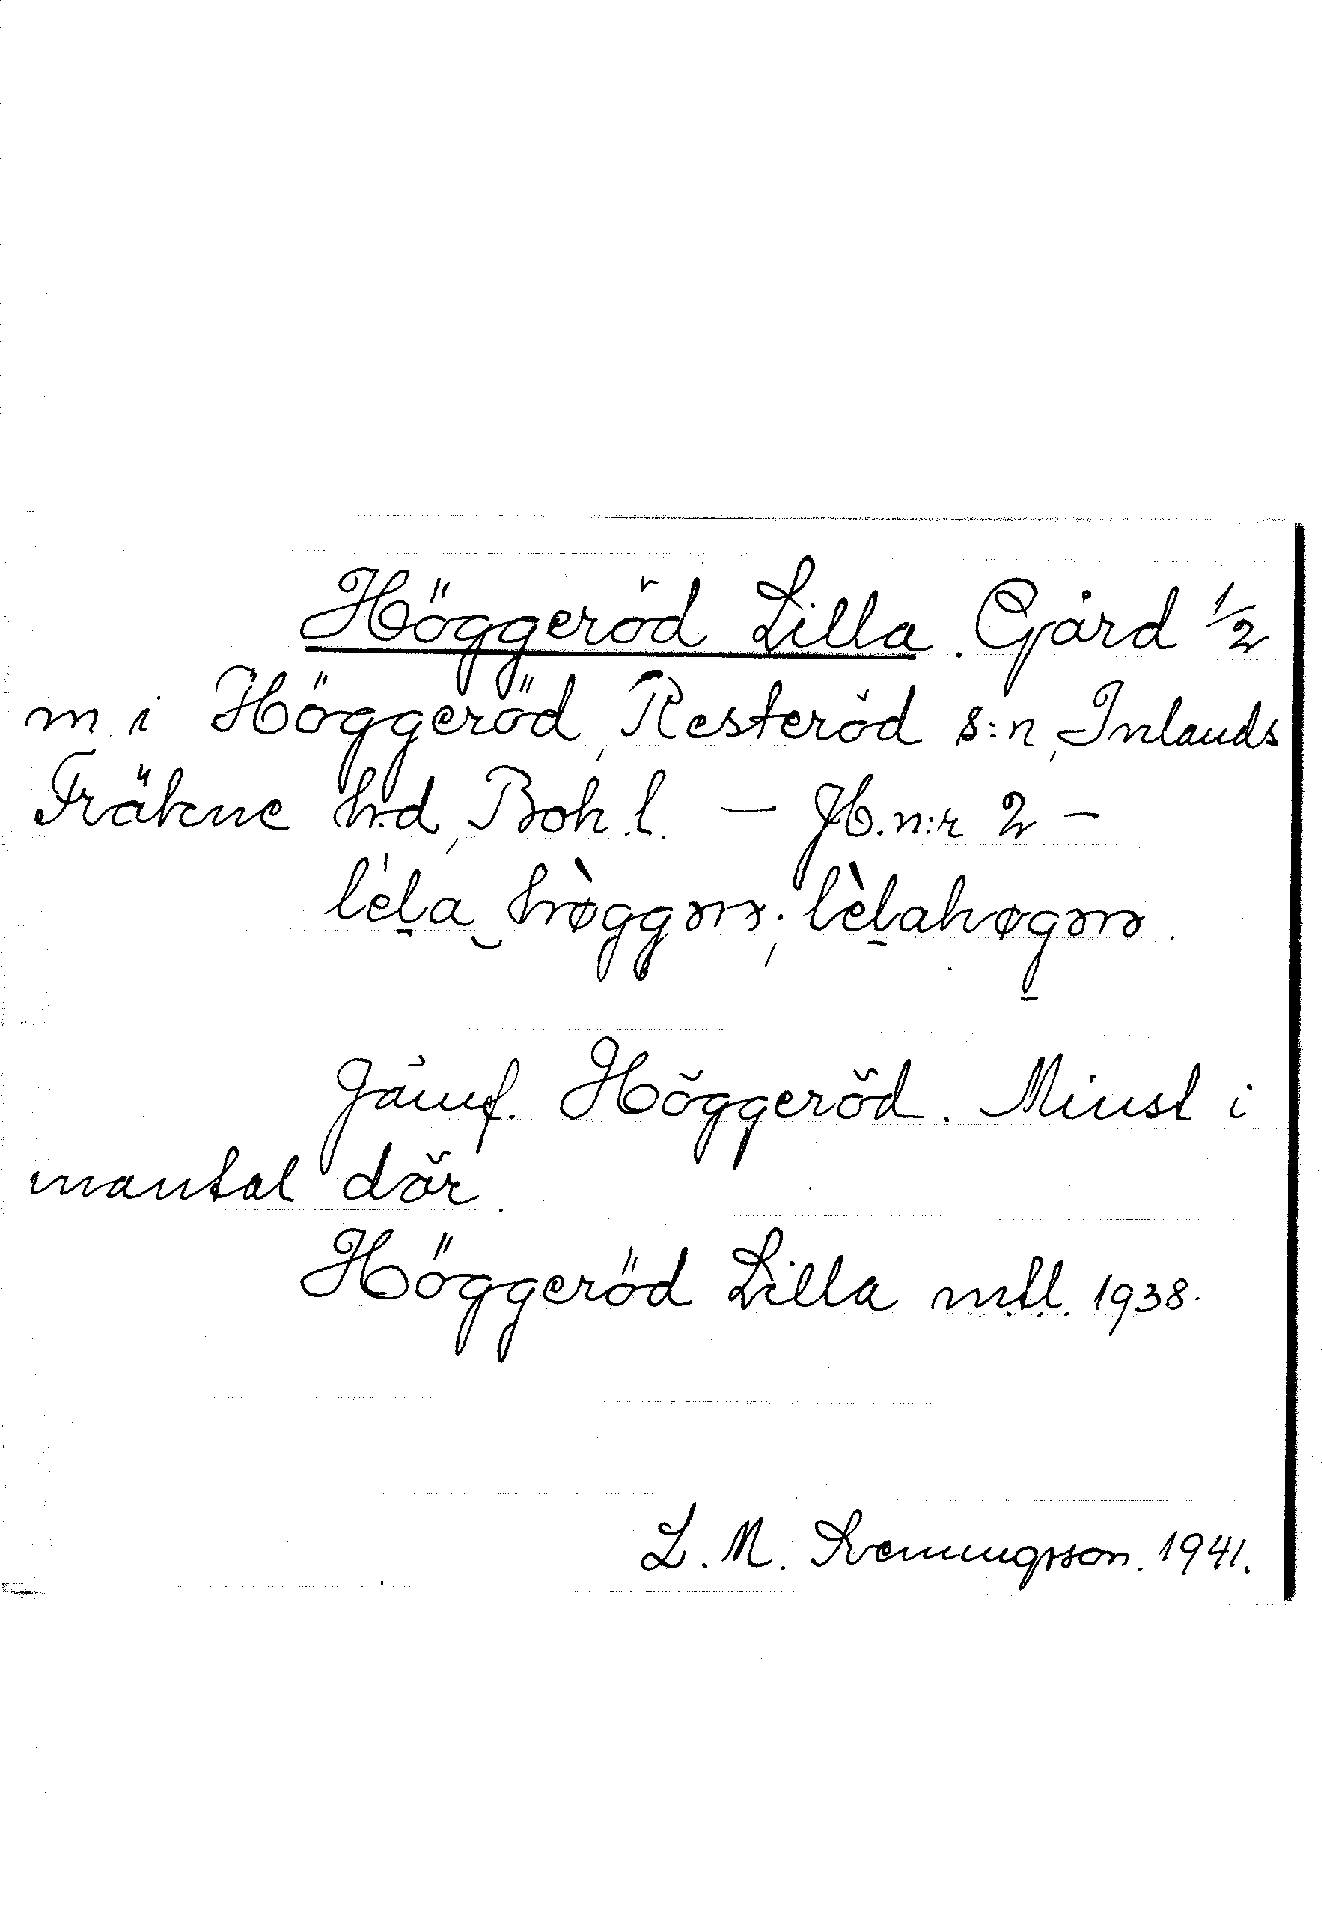 Höggeröd Lilla. Gård 1/2
m. i Höggeröd, Resteröd s:n, Inlands
Fräkne hd, Boh. l. — Jb. n:r 2 –
Jämf. Höggeröd. Minst i
mantal där.
Höggeröd Lilla mtl. 1938.
L. M. 1941.